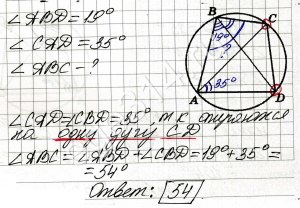 ∠ABD=19°
∠CAD=35°
∠ABC-?
B
C
19°
?
A
35°
D
∠CAD=∠CBD=35°, т.к опираются
на одну дугу CD
∠ABC=∠ABD+∠CBD=19°+35°=
=54°
Ответ: 54